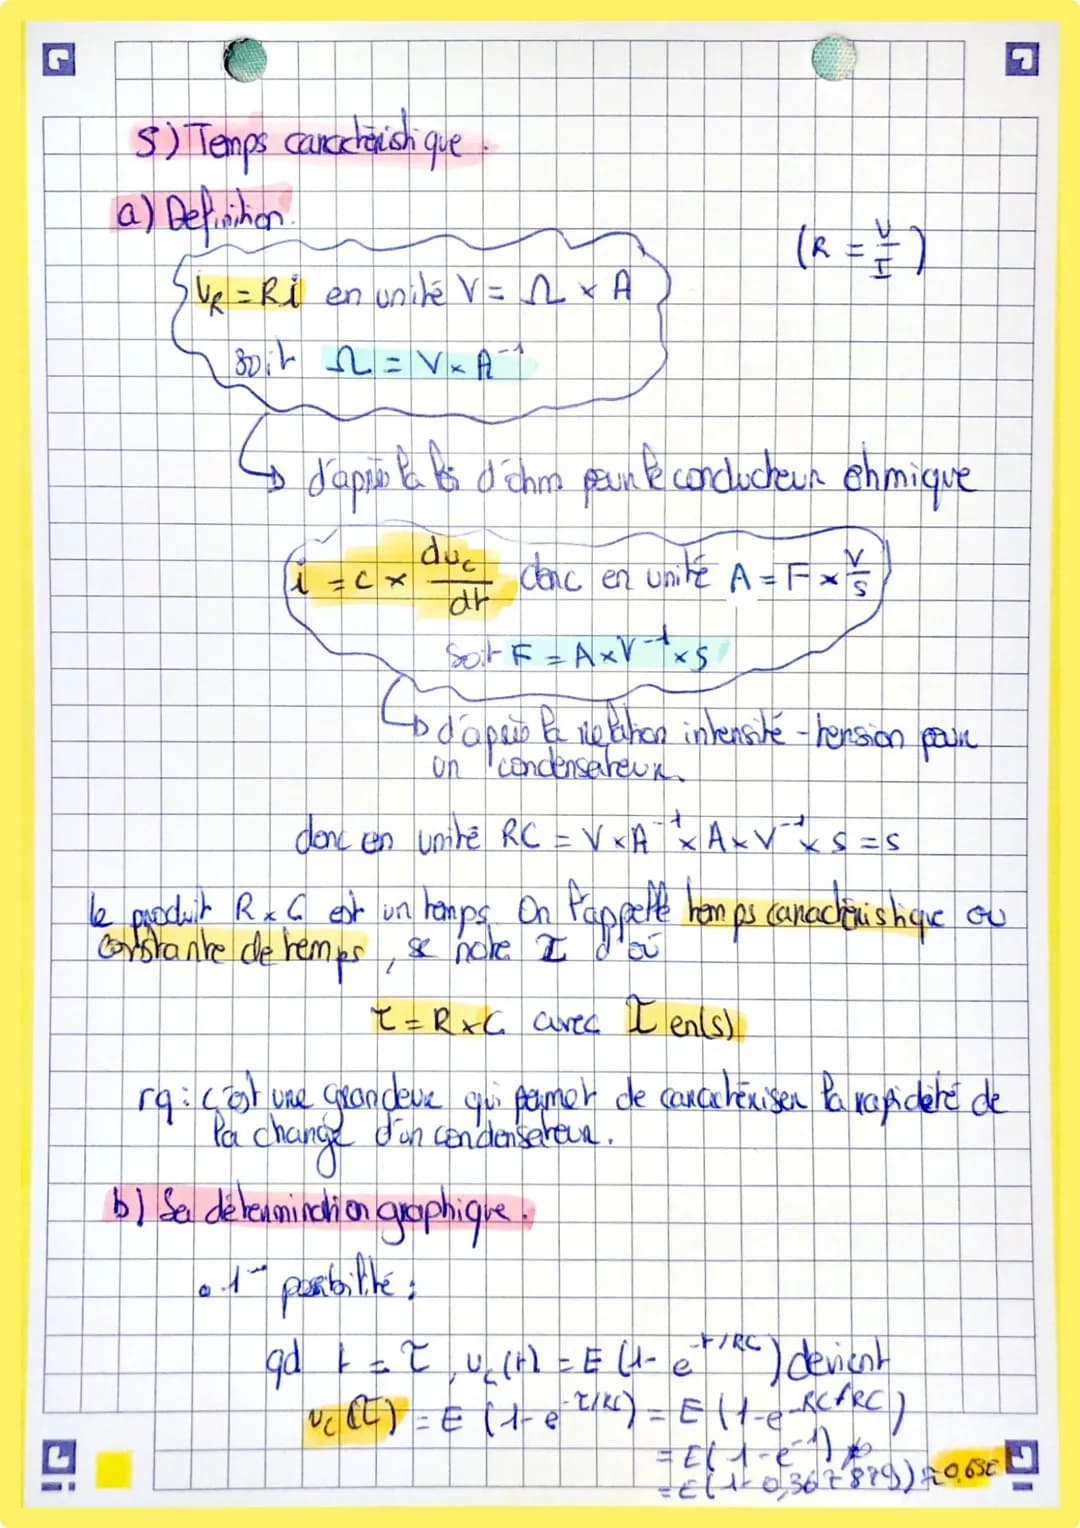 5) Temps caractéristique.
a) Definition.
(R = U/I)
U_R = Ri en unité V = Ω × A
soit Ω = V × A⁻¹
↳ d'après la loi d'ohm pour le conducteur ohmique
i = C × du_c/dt donc en unité A = F × V/s
soit F = A×V⁻¹×s
↳ d'après la relation intensité - tension pour
un condensateur.
donc en unité RC = V×A⁻¹×A×V⁻¹×s = s
le produit R×C est un temps. On l'appelle temps caractéristique ou
constante de temps, se note τ d'où
τ = R×C avec τ en(s)
rq : c'est une grandeur qui permet de caractériser la rapidité de
la charge d'un condensateur.
b) Sa détermination graphique.
• 1ʳᵉ possibilité :
qd t = τ, u_c(t) = E (1- e^-t/RC) devient
u_c(τ) = E (1-e^-τ/RC) = E (1-e^-RC/RC)
= E(1-e⁻¹)
= E(1-0,367879) ≈ 0,63E